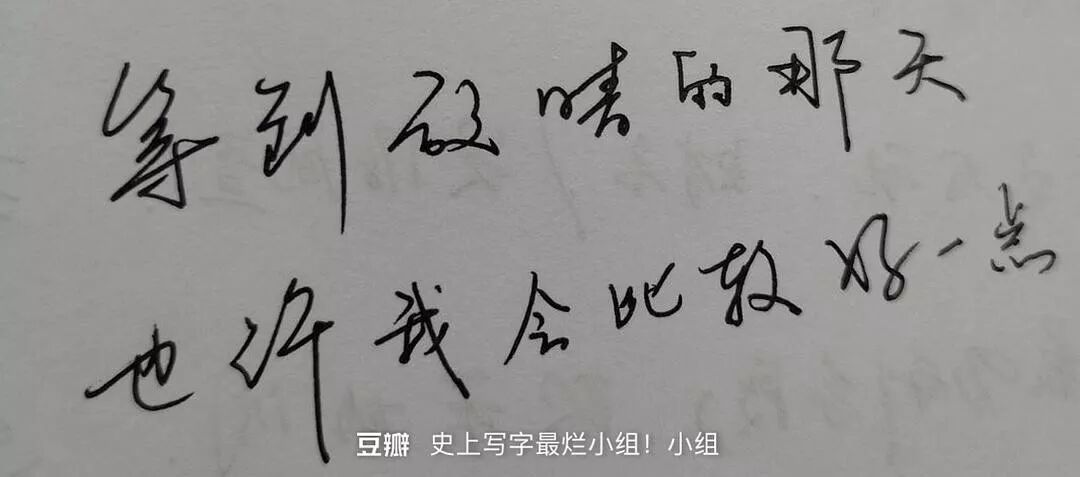 等到放晴的那天
也许我会比较好一点
豆瓣 史上写字最烂小组！小组